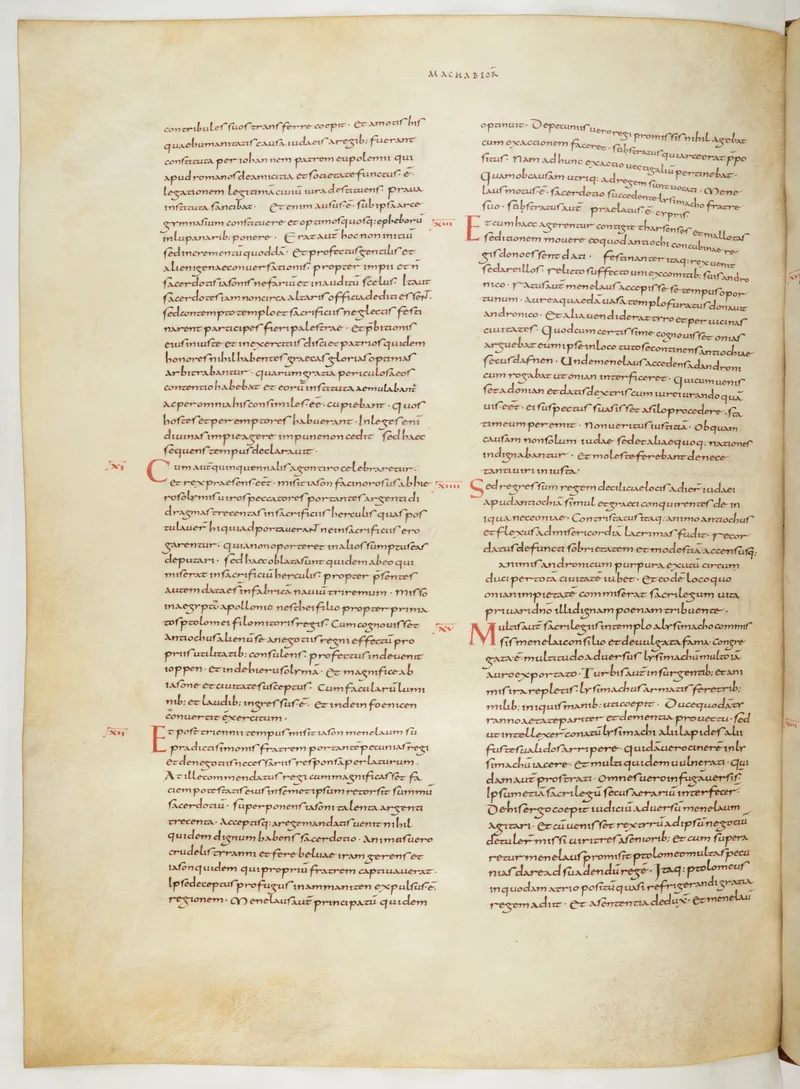 MACHABEOR̄
contribules suos transferre coepit · Et amotis his
quae humanitatis causa iudaeis a regib; fuerant
constituta per iohannem patrem eupolemi qui
apud romanos de amicitia et societate functus · ē ·
legationem legitima ciuiū iura destituens · praua
instituta sancibat · Et enim ausus · ē · sub ipsa arce
gymnasium constituere et optimos quosq; epheborū
in lupanarib; ponere · Erat aut̄ hoc non initiū
sed incrementū quoddā · Et profectus gentilis et
alienigenae conuersationis · propter impii et n̄
sacerdotis iasonis nefariū et inauditū scelus · Ita ut
sacerdotes iam non circa altaris officia dediti essent ·
sed contempto templo et sacrificiis neglectis festi
narent participes fieri palestrae · et p̄bitionis
eius iniuste et in exercitiis disci et patrios quidem
honores nihil habentes graecas glorias optimas
arbitrabantur · quarum gratia periculosa eos
contentio habebat et eorū instituta aemulabant̄
ac per omnia his consimiles eē · cupiebant · Quos
hostes et peremptores habuerant · In leges enī
diuinas impie agere impune non cedit sed haec
sequens tempus declarauit ·
XI
Cum aut̄ quinquennalis agon tiro celebraretur ·
et rex praesens eēt · misit iason facinorosus ab hie
rosolymis uiros peccatores portantes argenti di
dragmas trecentas in sacrificiis herculis quas pos
tulauer̄ hi qui adportauerant ne in sacrificiis ero
garentur · quia non oporteret in alios sumptus eas
deputari · sed hae oblatae sunt quidem ab eo qui
miserat in sacrificiū herculis · propter p̄sentes
autem datae s̄ in fabricā nauiū triremum · Misso
in aegyptū apollonio nesthei filio propter prima
tos ptolomei filomitoris regis · Cum cognouisset
Antiochus alienū se a negotiis regni effectū pro
priis utilitatib; consulens · profectus inde uenit
ioppen · et inde hierusolymā · Et magnifice ab
iasone et ciuitate susceptus · Cum facularū lumi
nib; et laudib; ingressus · ē · et inde in foenicen
conuertit exercitum ·
XII
Et post triennii tempus misit iason menelaum su
pradicti simonis fratrem portante pecunias regi
et de negotiis necessariis responsa perlaturum ·
At ille commendatus regi cum magnificasset fa
ciem potestatis eius in semet ipsum retorsit summū
sacerdotiū · superponens iasoni talenta argenti
trecenta · Acceptisq; a rege mandatis uenit nihil
quidem dignum habens sacerdotio · Animas uero
crudelis tyranni et fere beluae iram gerens et
iason quidem qui propriū fratrem captiuauerat ·
Ipse deceptus profugus in ammaniten expulsus ē ·
regionem · Menelaus aut̄ principatū quidem
optinuit · De pecuniis uero regi promissis nihil agebat
cum exactionem faceret · sostratus qui arce erat p̄po
situs · Nam ad hunc exactio uectigaliū pertinebat ·
Quam ob causam utriq; ad regem sunt uocati · Mene
laus motus · ē · sacerdotio succedente lysimacho fratre
suo · sostratus aut̄ praelatus · ē · cypriis
XIII
Et cum haec agerentur contigit tharsenses et mallotas
seditionem mouere eo quod antiochi concubinae re
gis dono essent dati · festinanter itaq; rex uenit
sedare illos · relicto suffecto uno ex comitib; suis andro
nico · ratus aut̄ menelaus accepisse se tempus opor
tunum · Aurea quaedā uasa templo furatus donauit
andronico · Et alia uendiderat tyro et per uicinas
ciuitates · Quod cum certissime cognouisset onias
arguebat eum ipse in loco tuto se continens antiochiae
secus dafnen · Unde menelaus accedens ad androni
cum rogabat ut onian interficeret · Qui cum uenis
set ad onian et datis dextris cum iureiurando qua
uis eēt · ei suspectus suasisset asilo procedere · sta
tim eum peremit · Non ueritus iustitiā · Ob quam
causam non solum iudae sed et aliae quoq; nationes
indignabantur · et moleste ferebant de nece
tanti uiri iniusta ·
XIIII
Sed regressum regem de ciliciae locis adier̄ iudaei
apud antiochiā simul et graeci conquirentes de in
iqua nece oniae · Contristatus itaq; animo antiochus
et flexus ad misericordiā lacrimas fudit · recor
datus defuncti sobrietatem et modestiā accensusq;
animis andronicum purpura exutū circum
duci per totā ciuitatē iubet · Et in eodē loco quo
onian impietatē commiserat sacrilegum uita
priuari dn̄o illi dignam poenam tribuente ·
XV
Multis aut̄ sacrilegiis in templo a lysimacho commis
sis menelai consilio et deuulgata fama · Congre
gata ē · multitudo aduersus lysimachū multo iā
auro exportato · Turbis aut̄ insurgentib; et ani
mis ira repletis lysimachus armatis fere trib;
milib; iniquis manib; uti coepit · Duce quodā ty
ranno aetate pariter et dementia prouectu · sed
ut intellexer̄ conatū lysimachi alii lapides alii
fustes ualidos arripere · quidā uero cinere in ly
simachū iacere · et multi quidem uulnerati · qui
dam aut̄ prostrati · Omnes uero in fugā uersi s̄ ·
Ipsum etiā sacrilegū secus aerariū interfecer̄ ·
De his ergo coepit iudiciū aduersū menelaum
agitari · Et cū uenisset rex tyrū ad ipsū negotiū
detuler̄ missi uiri tres a seniorib; et cum supera
retur menelaus promisit ptolomeo multas pecu
nias dare ad suadendū regē · Itaq; ptolomeus
in quodam atrio positū quasi refrigerandi gratia
regem adiit · Et a sententia deduxit · et menelaū